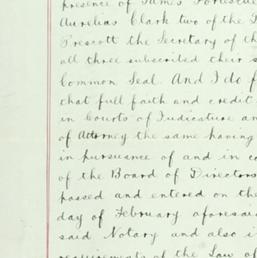 presence of James Fortescue
Aurelius Clark two of the
Prescott the Secretary of th
all three subscribed their s
Common Seal. And I do f
that full faith and credit
in Courts of Judicature an
of Attorney the same having
in pursuance of and in co
of the Board of Directors
passed and entered on the
day of February aforesaid
said Notary and also i
requirements of the Law of